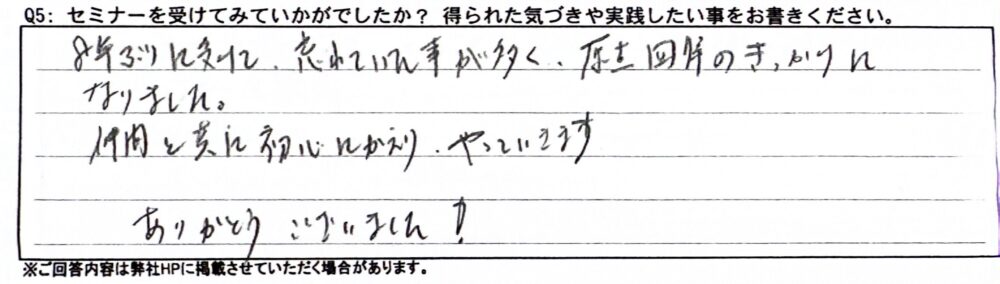 Q5: セミナーを受けてみていかがでしたか? 得られた気づきや実践したい事をお書きください。
8年ぶりに受けて、忘れていた事が多く、原点回帰のきっかけに
なりました。
仲間と共に初心にかえり、やっていきます
ありがとうございました!
※ご回答内容は弊社HPに掲載させていただく場合があります。